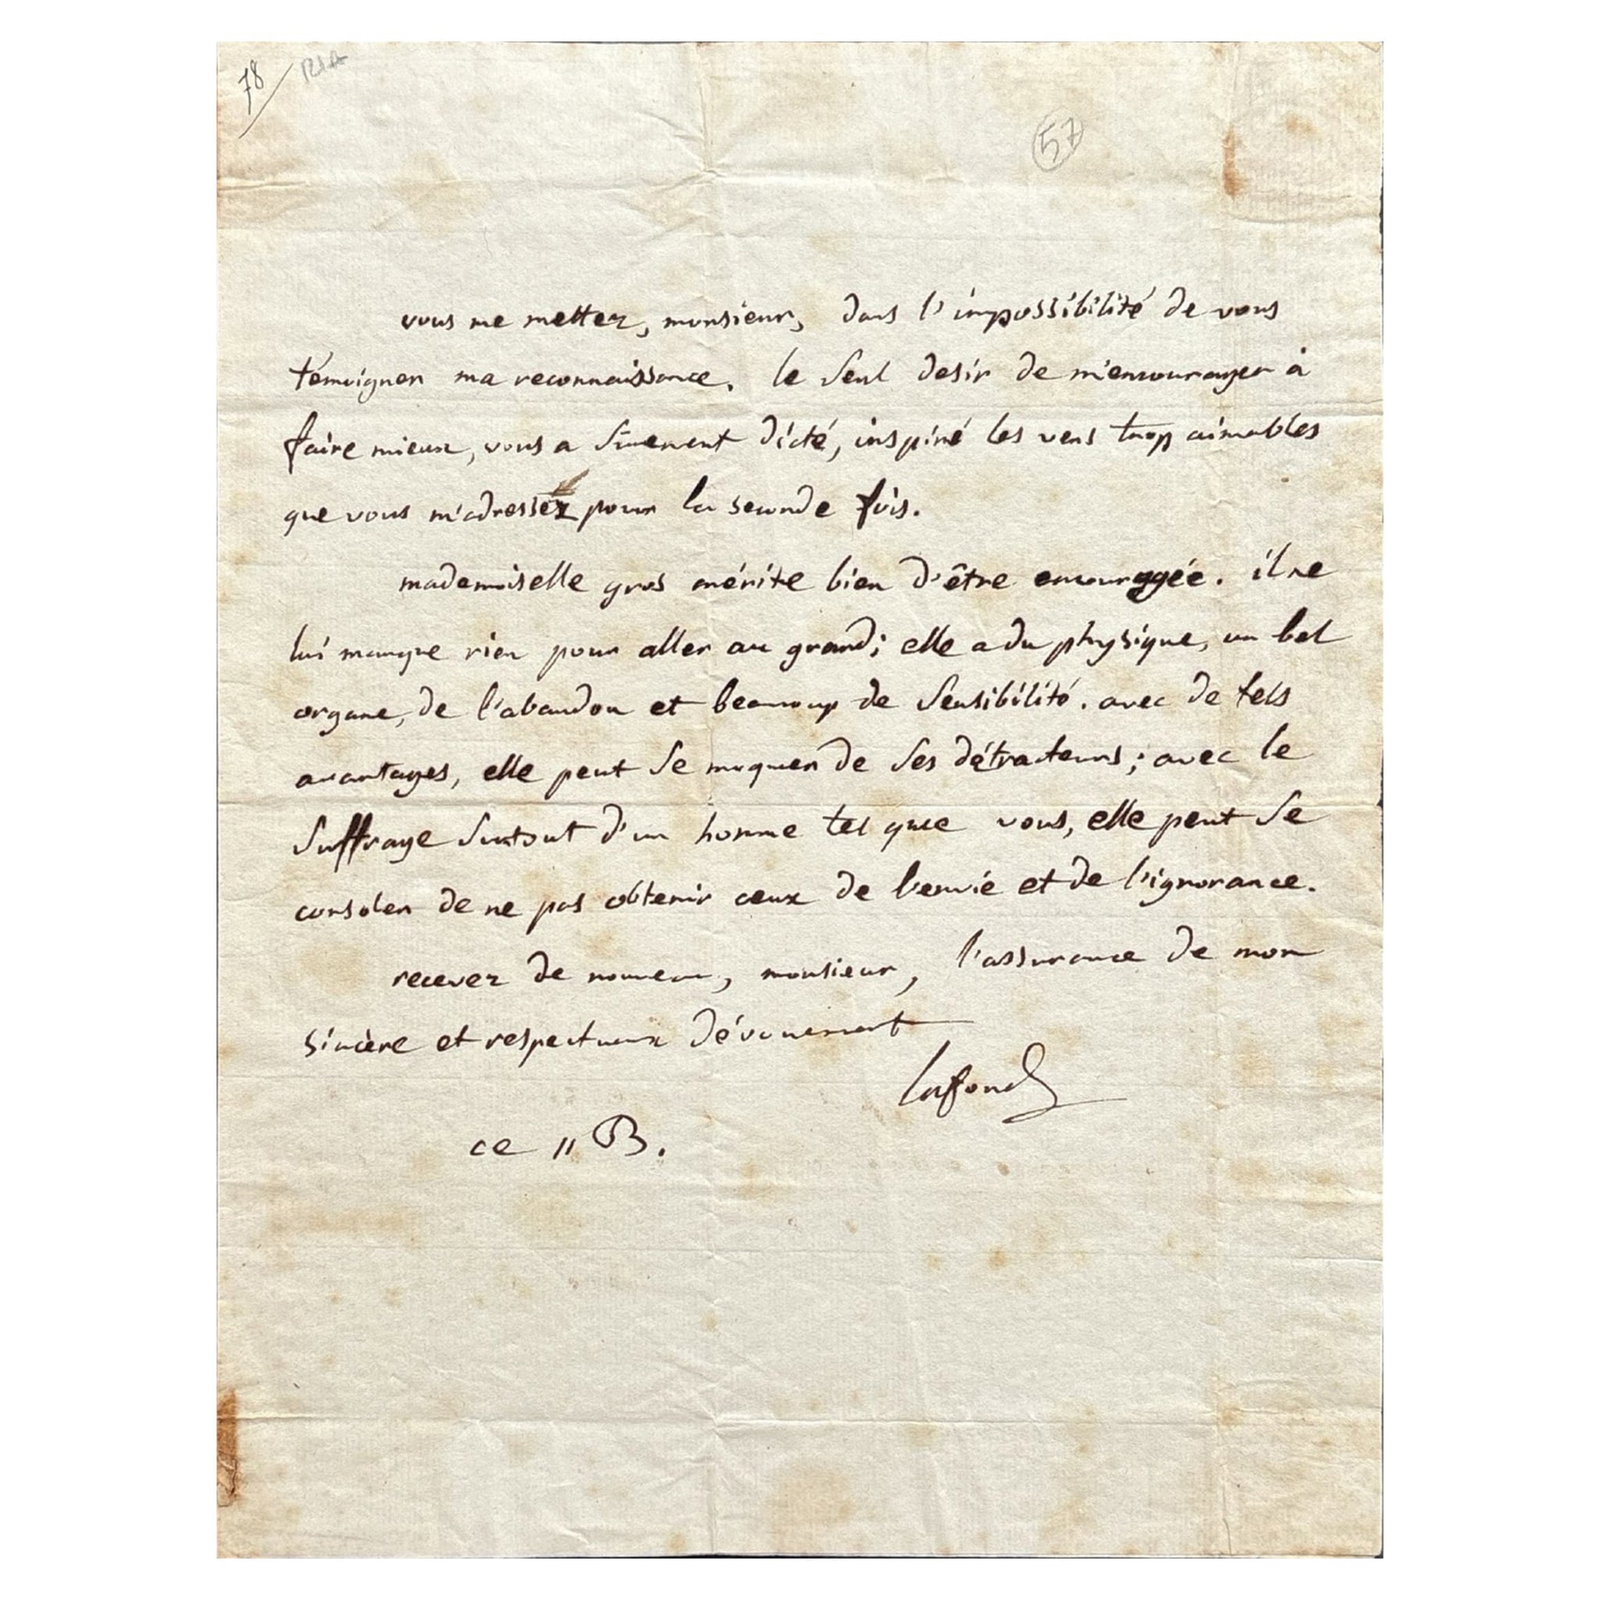 78
57
vous me mettez, monsieur, dans l'impossibilité de vous
témoigner ma reconnaissance. le seul desir de m'encourager à
faire mieux, vous a surement dicté, inspiré les vers trop aimables
que vous m'adressez pour la seconde fois.
mademoiselle gros mérite bien d'être encouragée. il ne
lui manque rien pour aller au grand; elle a du physique, un bel
organe, de l'abandon et beaucoup de sensibilité. avec de tels
avantages, elle peut se moquer de ses détracteurs; avec le
suffrage surtout d'un homme tel que vous, elle peut se
consoler de ne pas obtenir ceux de l'envie et de l'ignorance.
recevez de nouveau, monsieur, l'assurance de mon
sincère et respectueux dévouement
lafond
ce 11